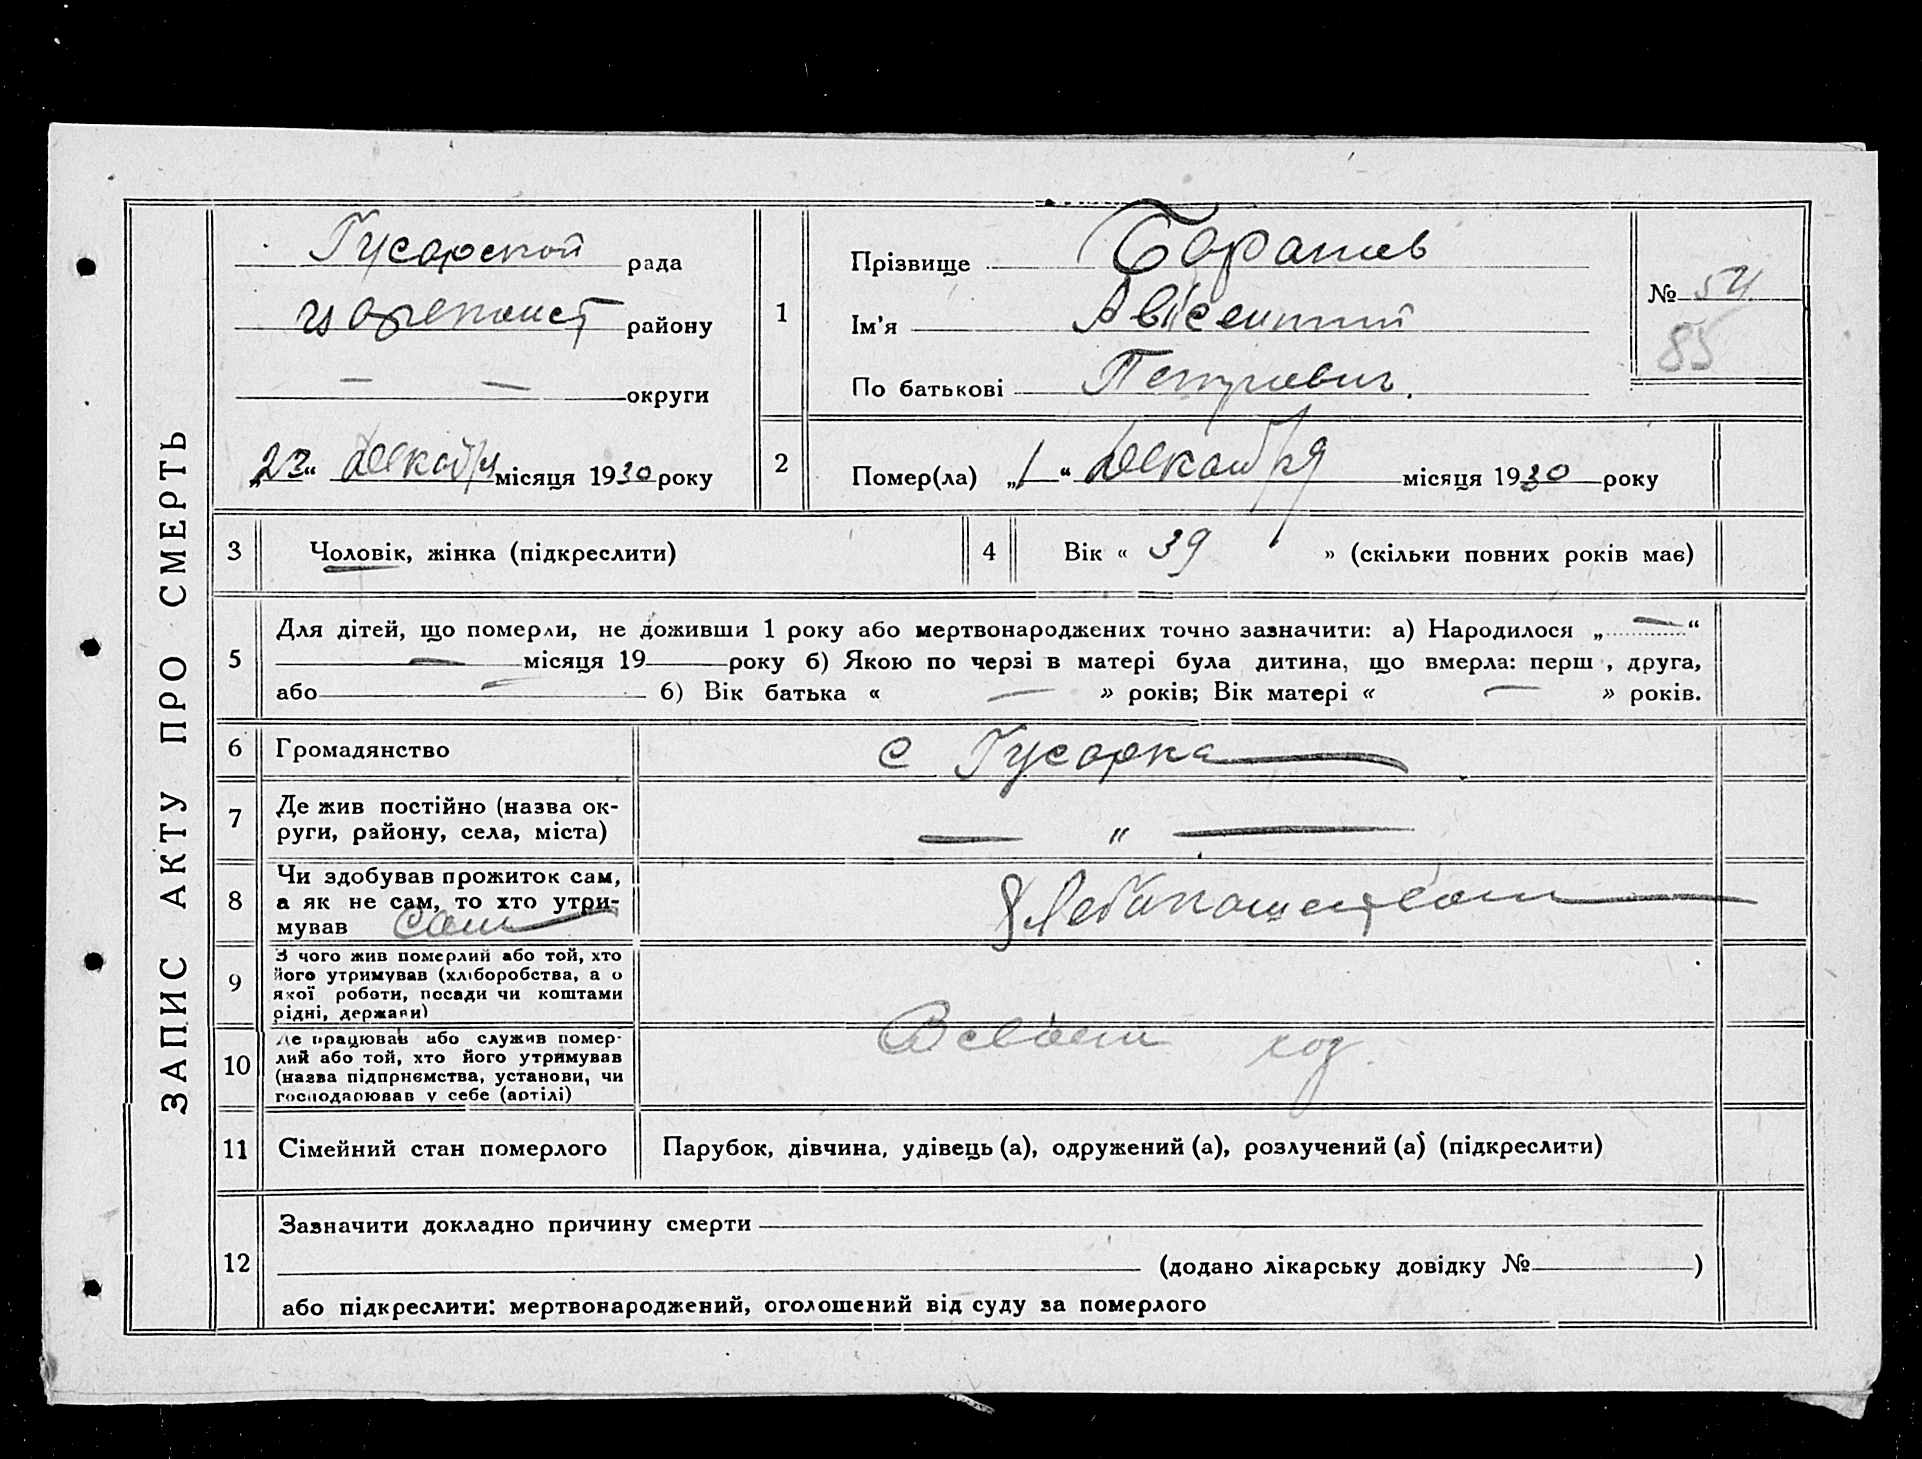 ЗАПИС АКТУ ПРО СМЕРТЬ
Гусарской рада
району
— — округи
„23“ Декабря місяця 1930 року
1
Прізвище
Ім'я Авксентий
По батькові Петрович.
№ 54
85
2
Помер(ла) „1“ Декабря місяця 1930 року
3
Чоловік, жінка (підкреслити)
4
Вік « 39 » (скільки повних років має)
5
Для дітей, що померли, не доживши 1 року або мертвонароджених точно зазначити: а) Народилося „—“
— місяця 19 року б) Якою по черзі в матері була дитина, що вмерла: перш , друга,
або — 6) Вік батька « — » років; Вік матері « — » років.
6
Громадянство
с Гусарка
7
Де жив постійно (назва ок-
руги, району, села, міста)
— " —
8
Чи здобував прожиток сам,
а як не сам, то хто утри-
мував сам
Хлебопашеством
9
З чого жив померлий або той, хто
його утримував (хліборобства, а о
якої роботи, посади чи коштами
рідні, держави)
10
Де працював або служив помер-
лий або той, хто його утримував
(назва підприємства, установи, чи
господарював у себе (артілі)
В своем хоз.
11
Сімейний стан померлого
Парубок, дівчина, удівець (а), одружений (а), розлучений (а) (підкреслити)
12
Зазначити докладно причину смерти
(додано лікарську довідку № )
або підкреслити: мертвонароджений, оголошений від суду за померлого